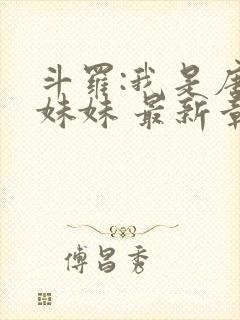 斗罗:我是唐
妹妹 最新章
傅昌秀